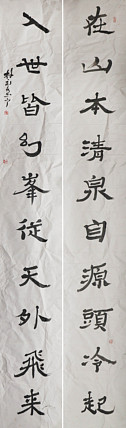 在山本清泉自源頭冷起
入世皆幻峯從天外飛来